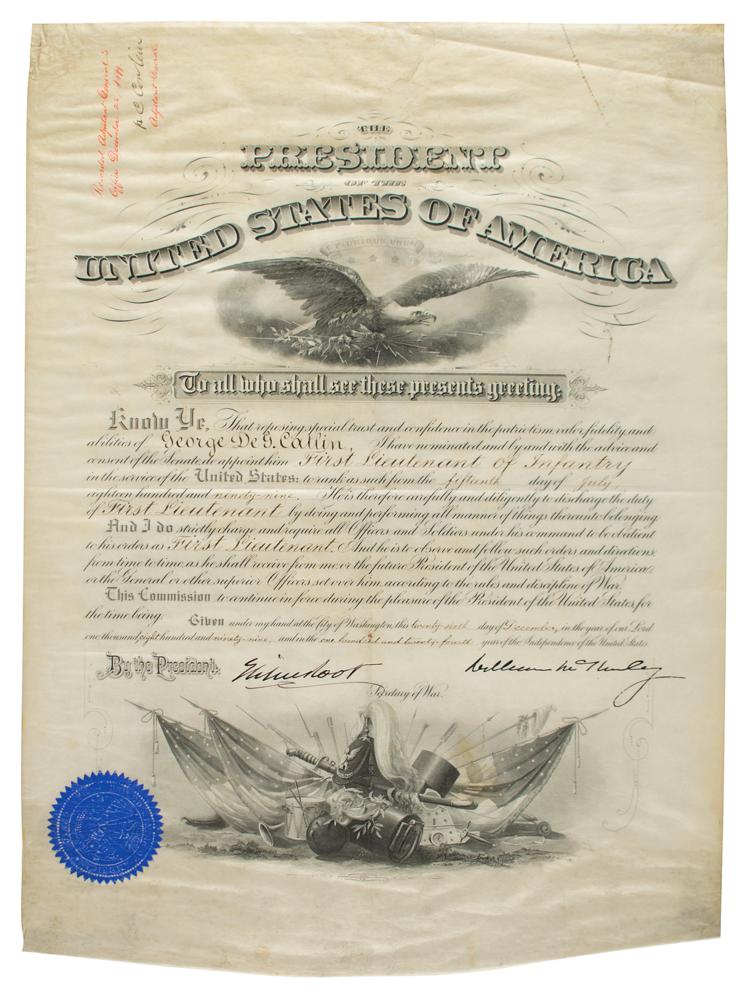 Recorded Adjutant General's
Office December 22 1899
Adjutant General
THE
PRESIDENT
OF THE
UNITED STATES OF AMERICA
E PLURIBUS UNUM
To all who shall see these presents greeting:
Know Ye, That reposing special trust and confidence in the patriotism, valor, fidelity and
abilities of George De G. Catlin, I have nominated and by and with the advice and
consent of the Senate do appoint him First Lieutenant of Infantry
in the service of the United States: to rank as such from the fifteenth day of July,
eighteen hundred and ninety-nine. He is therefore carefully and diligently to discharge the duty
of First Lieutenant by doing and performing all manner of things thereunto belonging.
And I do strictly charge and require all Officers and Soldiers under his command to be obedient
to his orders as First Lieutenant. And he is to observe and follow such orders and directions
from time to time as he shall receive from me or the future President of the United States of America
or the General or other superior Officers set over him, according to the rules and discipline of War.
This Commission to continue in force during the pleasure of the President of the United States for
the time being.
Given under my hand at the City of Washington, this day of December, in the year of our Lord
one thousand eight hundred and ninety-nine, and in the one hundred and twenty-fourth year of the Independence of the United States.
By the President: Elihu Root William McKinley
Secretary of War.